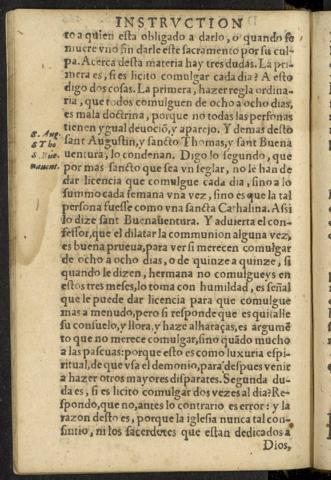 INSTRVCTION
to a quien esta obligado a darlo, o quando se
muere vno sin darle este sacramento por su cul-
pa. Acerca desta materia hay tres dudas. La pri-
mera es, si es licito comulgar cada dia? A esto
digo dos cosas. La primera, hazer regla ordina-
ria, que todos comulguen de ocho a ocho dias,
es mala doctrina, porque no todas las personas
tienen ygual deuociõ, y aparejo. Y demas desto
S. Aug.
sant Augustin, y sancto Thomas, y sant Buena
S Tho
uentura, lo condenan. Digo lo segundo, que
S. Bue
por mas sancto que sea vn seglar, no le han de
nauent.
dar licencia que comulgue cada dia, sino a lo
summo cada semana vna vez, sino es que la tal
persona fuesse como vna sancta Catharina. Assi
lo dize sant Buenauentura. Y aduierta el con-
fessor, que el dilatar la communion alguna vez,
es buena prueua, para ver si merecen comulgar
de ocho a ocho dias, o de quinze a quinze, si
quando le dizen, hermana no comulgueys en
estos tres meses, lo toma con humildad, es señal
que le puede dar licencia para que comulgue
mas a menudo, pero si responde que es quitalle
su consuelo, y llora, y haze alharacas, es argumẽ
to que no merece comulgar, sino quãdo mucho
a las pascuas: porque esto es como luxuria espi-
ritual, de que vsa el demonio, para despues venir
a hazer otros mayores disparates. Segunda du-
da es, si es licito comulgar dos vezes al dia? Re-
spondo, que no, antes lo contrario es error: y la
razon desto es, porque la iglesia nunca tal con-
sintio, ni los sacerdotes que estan dedicados a
Dios,